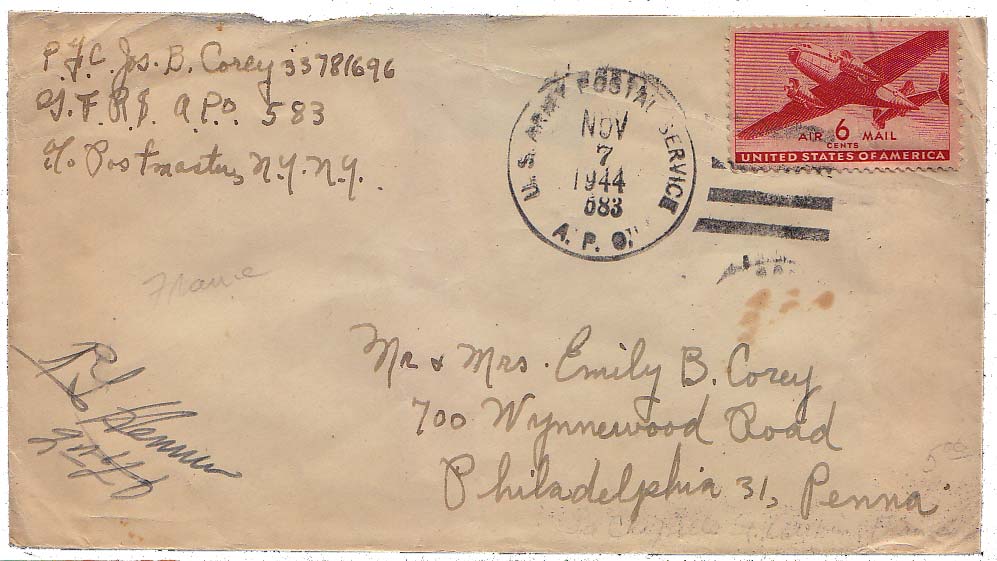 P.F.C. Jos. B. Corey 33781696
G.F.R.S. A.P.O. 583
c/o Postmaster, N.Y. N.Y.
U.S. ARMY POSTAL SERVICE
NOV
7
1944
583
A.P.O.
AIR 6 MAIL
CENTS
UNITED STATES OF AMERICA
France
Mr & Mrs. Emily B. Corey
700 Wynnewood Road
Philadelphia 31, Penna.
5.00